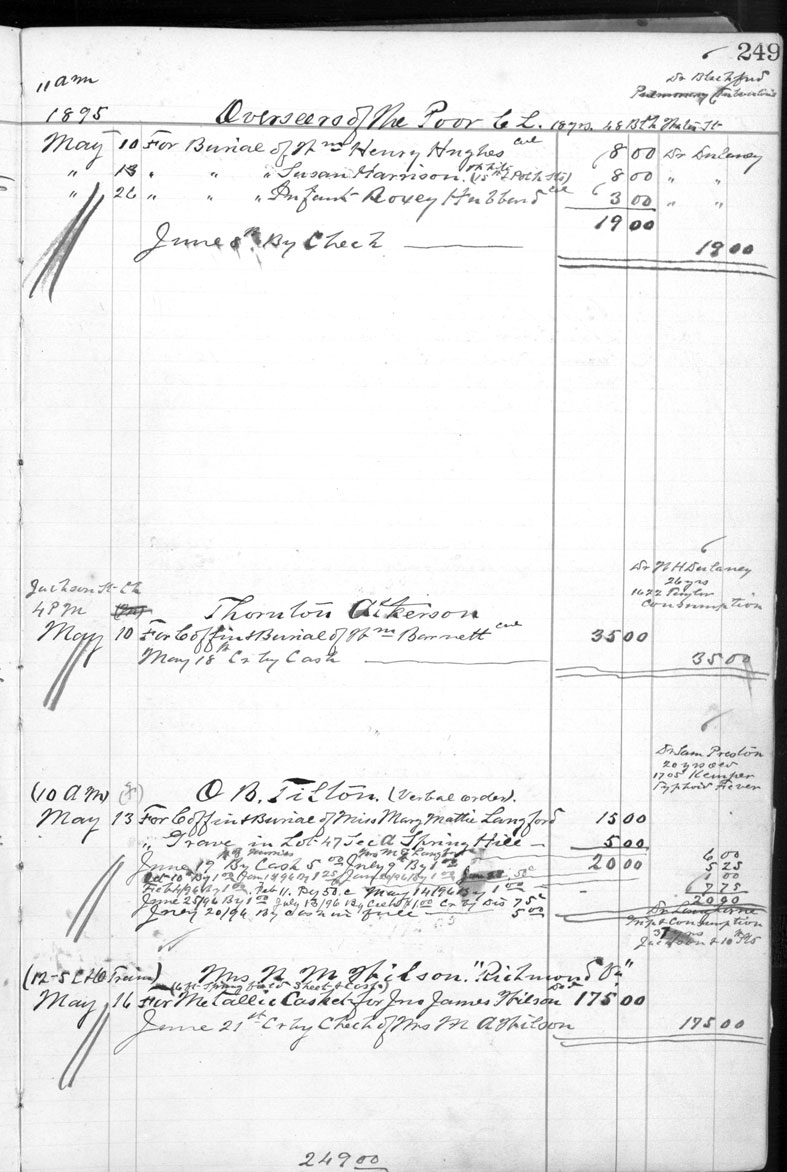 249
11 am
Dr Blackford
Pulmonary Tuberculosis
1895 Overseers of the Poor C L. 18 yrs. 48 Bth Water St
May 10 For Burial of Wm Henry Hughes col 8 00 Dr Dulaney
" 13 " " " Susan Harrison. White (15th & Polk Sts) 8 00 " "
" 26 " " " Infant Roxey Hubbard col 3 00 " "
19 00
June 8th By Check 19 00
Dr W H Dulaney
26 yrs
1622 Taylor
Consumption
Jackson St Ch
4 P M Thornton Ackerson
May 10 For Coffin & Burial of Wm Barnett col 35 00
May 18th Cr by Cash 35 00
Dr Sam Preston
20 yrs old
1705 Kemper
Typhoid Fever
(10 A M) O. B. Tilton. (Verbal order).
May 13 For Coffin & Burial of Miss Mary Mattie Langford 15 00
" Grave in Lot 47 Sec A Spring Hill 5 00
June 17 By Cash 5 00 July 9 By 1 00 20 00 6 00
Oct 10 By 1 00 Jan 18/96 By 1 25 5 25
Feb 4/96 By 1 00 Feb 11. By 50 c May 14/96 By 1 00 1 00
7 75
June 25/96 By 1 00 July 13/96 By Cash 1.00 Cr by Dis 75c 20 00
July 20/96 By Cash in full 5 00
Dr Langhorne
Consumption
37 yrs
Jackson & 10th Sts
(12-5 C & O Train) Mrs. N. M. Wilson. "Richmond Va"
May 16 For Metallic Casket for Jno James Wilson 175 00
June 21st Cr by Check of Mrs M A Wilson 175 00
249 00